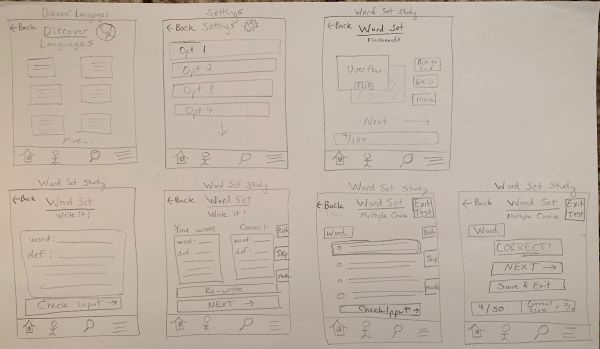 Discover Languages
←Back
Discover
Languages
More...
Settings
←Back Settings
Opt 1
Opt 2
Opt 3
Opt 4
Word Set Study
←Back Word Set
Flashcards
Skip
Next →
7/150
Word Set Study
←Back Word Set
Write it!
word:
def:
Check Input →
Word Set Study
←Back Word Set
Write it!
You wrote Correct:
word: word:
def: def:
Skip
Re-write
NEXT →
Word Set Study
←Back Word Set
Multiple Choice
Exit
Test
Word:
Skip
Check Input →
Word Set Study
←Back Word Set
Multiple Choice
Exit
Test
Word:
CORRECT!
NEXT →
Save & Exit
Current